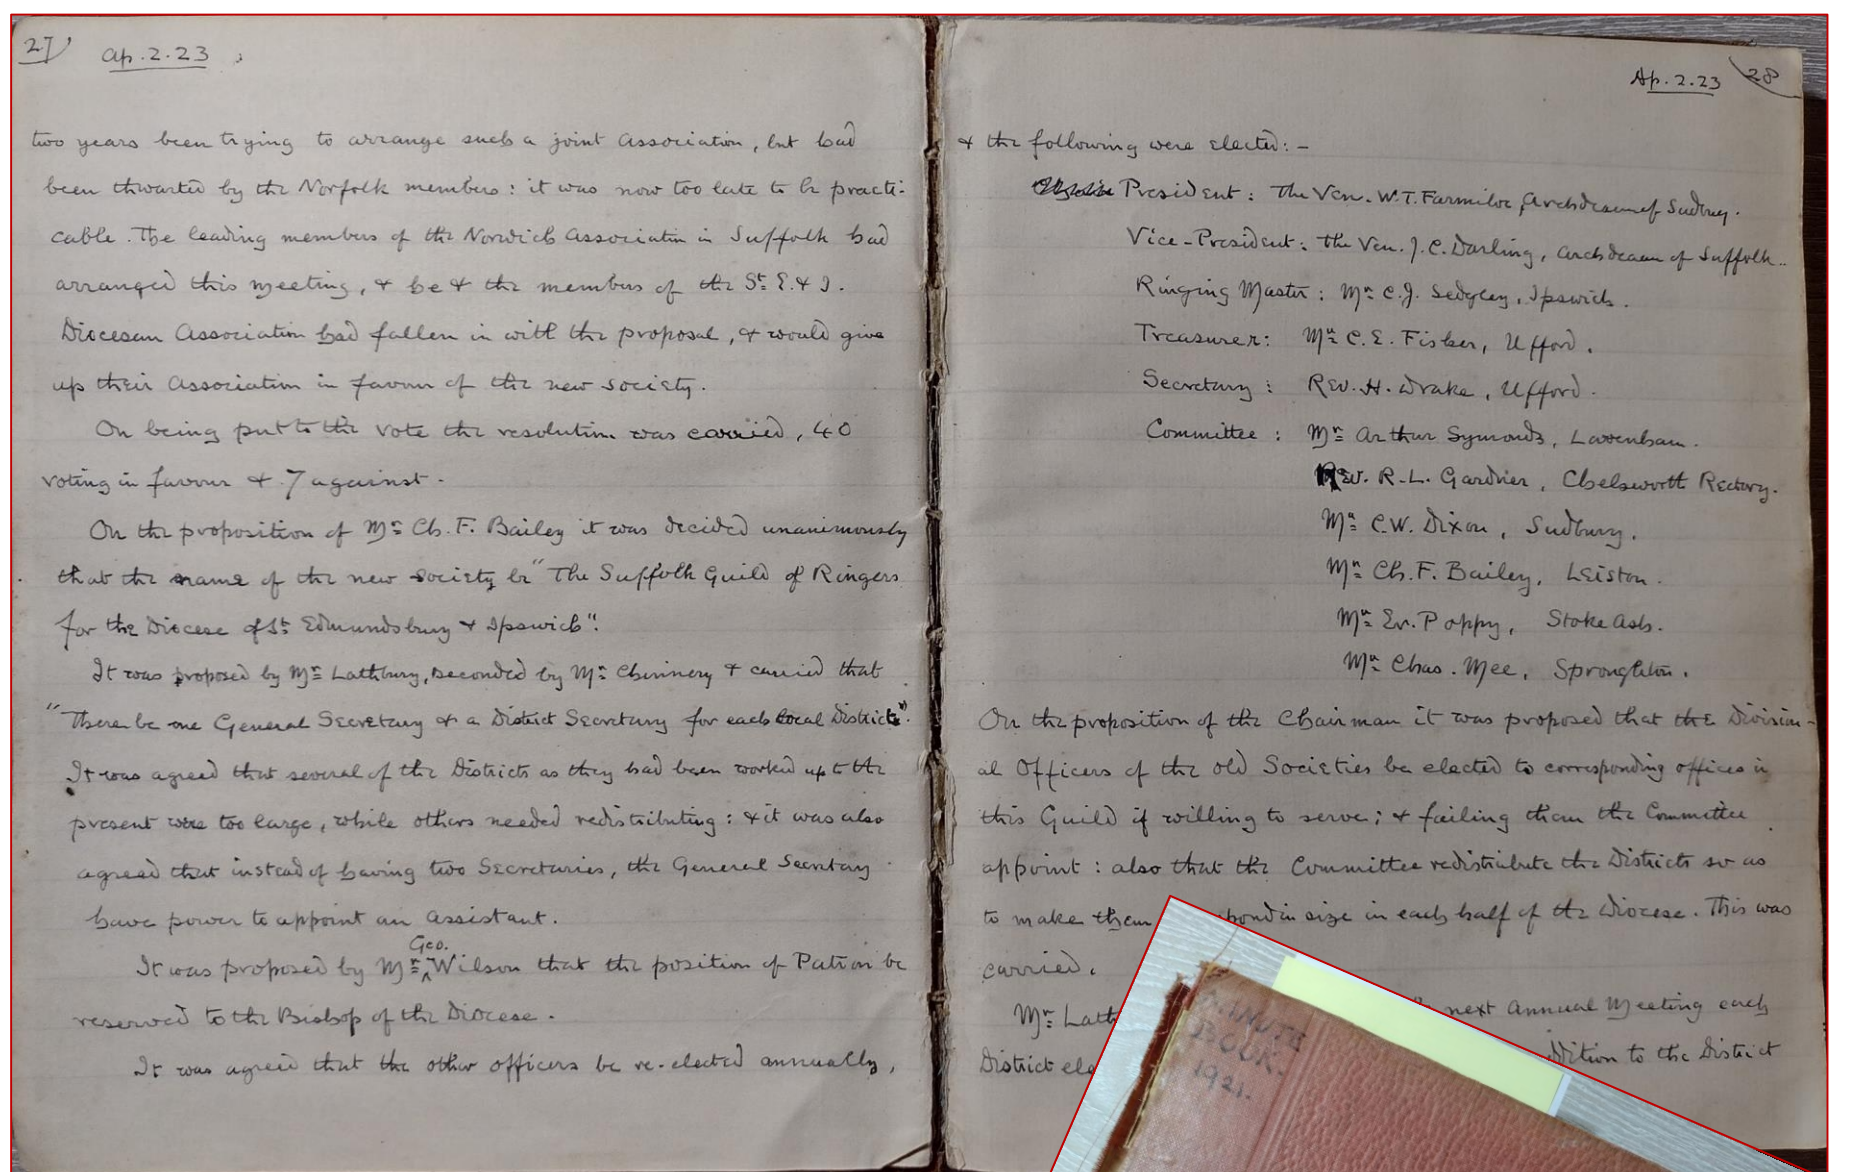 27
Ap. 2. 23
two years been trying to arrange such a joint Association, but had
been thwarted by the Norfolk members: it was now too late to be practi-
cable. The leading members of the Norwich Association in Suffolk had
arranged this meeting, & he & the members of the St. E. & I.
Diocesan Association had fallen in with the proposal, & would give
up their Association in favour of the new society.
On being put to the vote the resolution was carried, 40
voting in favour & 7 against.
On the proposition of Mr. Ch. F. Bailey it was decided unanimously
that the name of the new society be "The Suffolk Guild of Ringers
for the Diocese of St. Edmundsbury & Ipswich".
It was proposed by Mr. Lathbury, seconded by Mr. Chinnery & carried that
"There be one General Secretary & a District Secretary for each local District".
It was agreed that several of the Districts as they had been worked up to the
present were too large, while others needed redistributing: & it was also
agreed that instead of having two Secretaries, the General Secretary
have power to appoint an assistant.
It was proposed by Mr. Geo. Wilson that the position of Patron be
reserved to the Bishop of the Diocese.
It was agreed that the other officers be re-elected annually,
Ap. 2. 23
28
& the following were elected: -
President: The Ven. W. T. Farmiloe, Archdeacon of Sudbury.
Vice-President: The Ven. J. C. Darling, Archdeacon of Suffolk.
Ringing Master: Mr. C. J. Sedgley, Ipswich.
Treasurer: Mr. C. E. Fisher, Ufford.
Secretary: Rev. H. Drake, Ufford.
Committee: Mr. Arthur Symonds, Lavenham.
Rev. R. L. Gardner, Chelsworth Rectory.
Mr. C. W. Dixon, Sudbury.
Mr. Ch. F. Bailey, Leiston.
Mr. Ev. Poppy, Stoke Ash.
Mr. Chas. Mee, Sproughton.
On the proposition of the Chairman it was proposed that the Division-
al Officers of the old Societies be elected to corresponding offices in
this Guild if willing to serve; & failing them the Committee
appoint: also that the Committee redistribute the Districts so as
to make them pond in size in each half of the Diocese. This was
carried.
Mr. Lath next Annual Meeting each
District ele dition to the District
MINUTE
BOOK.
1921.